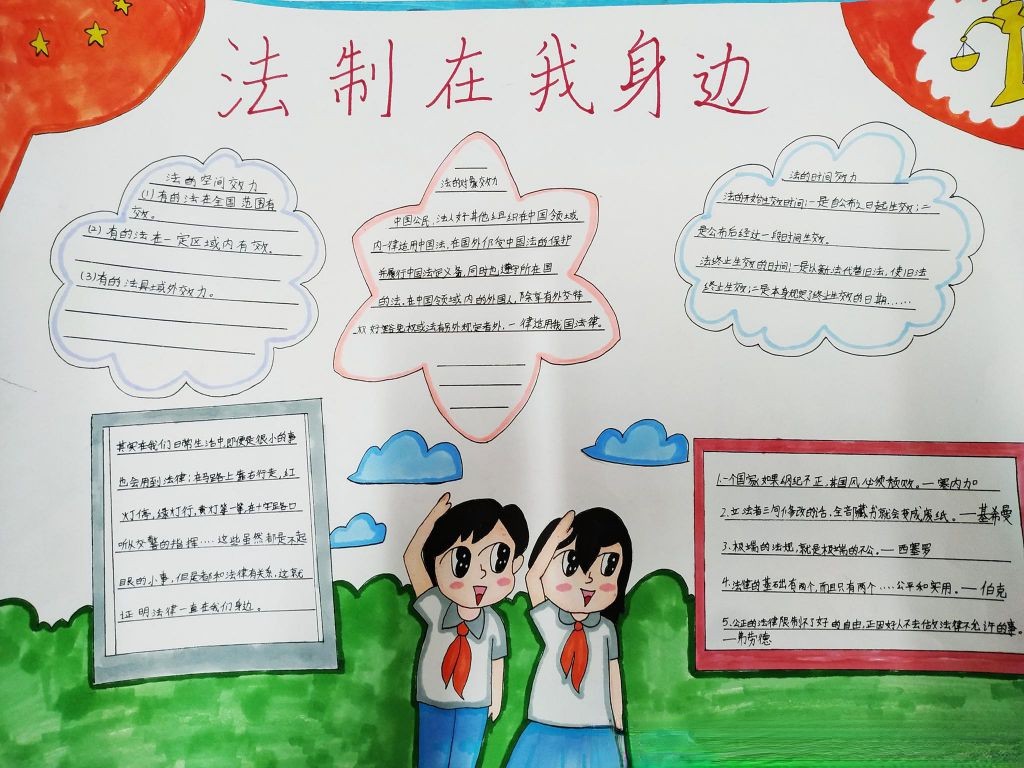 法制在我身边
法的空间效力
(1)有的法在全国范围有
效。
(2)有的法在一定区域内有效。
(3)有的法具有域外效力。
法的对象效力
中国公民,法人好其他组织在中国领域
内一律运用中国法,在国外仍受中国法的保护
并履行中国法定义务,同时也遵守所在国
的法,在中国领域内的外国人,除享有外交特
权好豁免权或法有另外规定者外,一律适用我国法律。
法的时间效力
法的开始生效时间:一是自公布之日起生效;二
是公布后经过一段时间生效。
法终止生效的时间:一是以新法代替旧法,使旧法
终止生效;二是本身规定了终止生效的日期……
其实在我们日常生活中,即便是很小的事
也会用到法律;在马路上靠右行走,红
灯停,绿灯行,黄灯等一等,在十字路口
听从交警的指挥....这些虽然都是不起
眼的小事,但是都和法律有关系,这就
证明法律一直在我们身边。
1.一个国家如果纲纪不正,其国风必须颓败。—塞内加
2.立法者三句修改的话,全部藏书就会变成废纸。—基希曼
3.极端的法规,就是极端的不公。—西塞罗
4.法律的基础有两个,而且只有两个....公平和实用。—伯克
5.公正的法律限制不了好的自由,正因好人不去做法律不允许的事。
—弗劳德